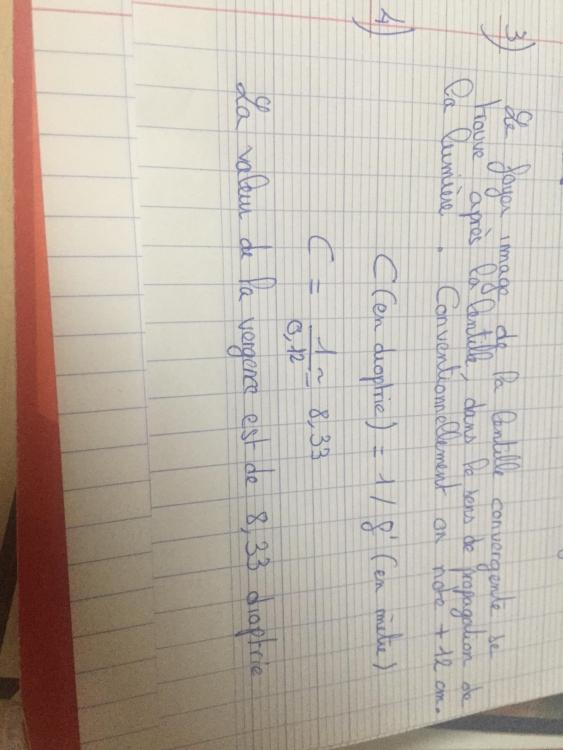 3) Le foyer image de la lentille convergente se
trouve après la lentille, dans le sens de propagation de
la lumière. Conventionnellement on note +12 cm.
4)
C (en dioptrie) = 1 / f' (en mètre)
C = 1/0,12 ≃ 8,33
La valeur de la vergence est de 8,33 dioptrie